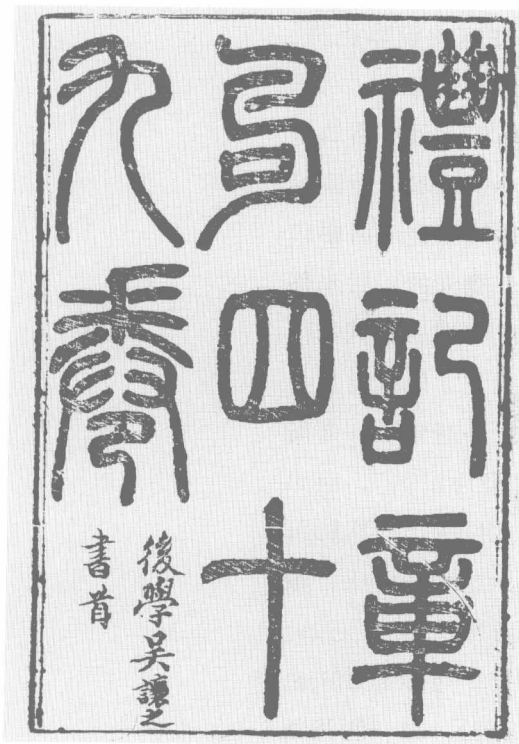 禮記章
句四十
九卷
後學吳讓之
書首